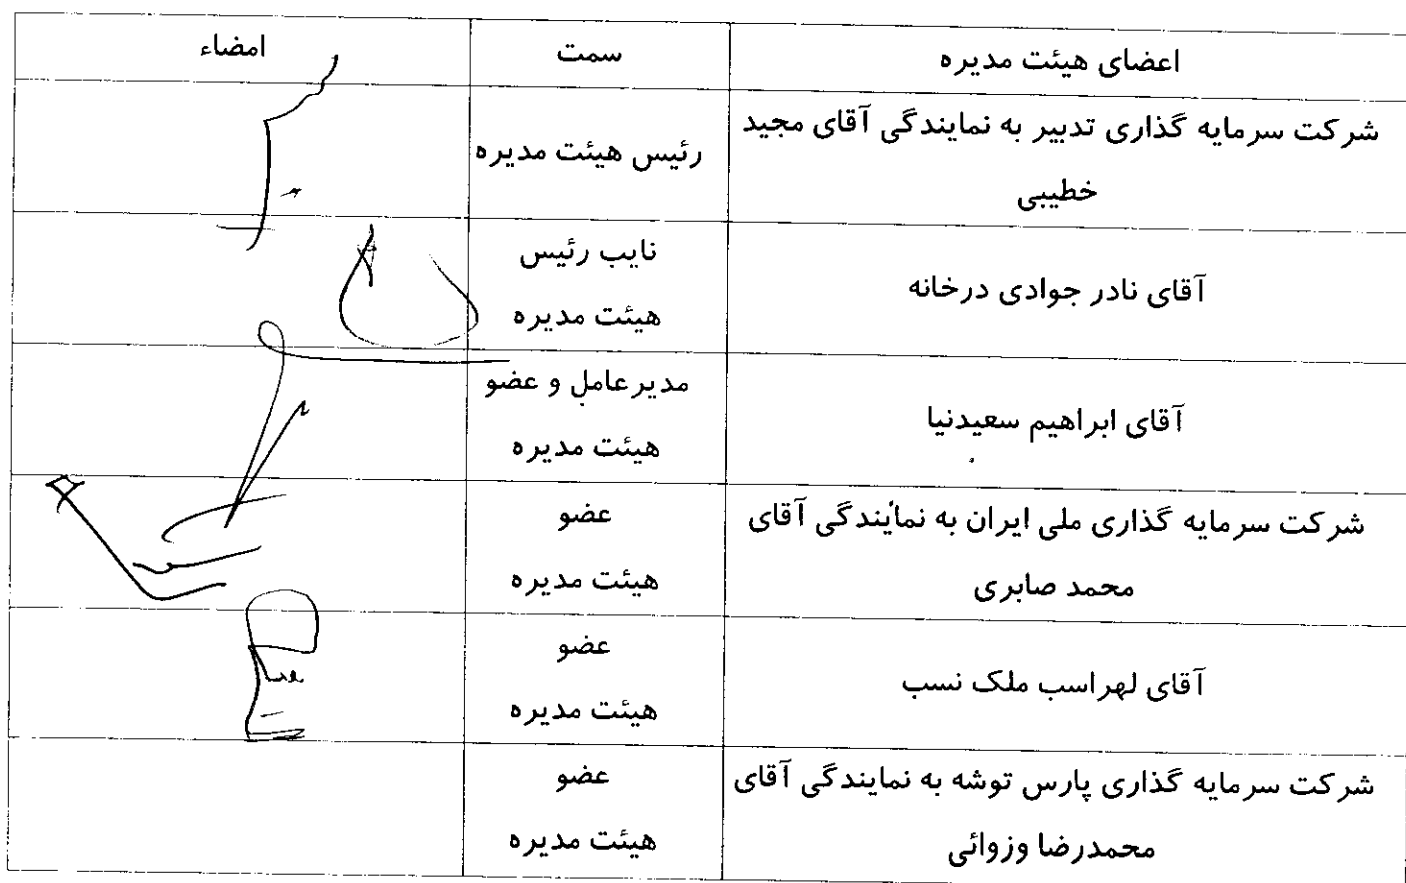 اعضای هیئت مدیره
سمت
امضاء
شرکت سرمایه گذاری تدبیر به نمایندگی آقای مجید
خطیبی
رئیس هیئت مدیره
آقای نادر جوادی درخانه
نایب رئیس
هیئت مدیره
آقای ابراهیم سعیدنیا
مدیرعامل و عضو
هیئت مدیره
شرکت سرمایه گذاری ملی ایران به نمایندگی آقای
محمد صابری
عضو
هیئت مدیره
آقای لهراسب ملک نسب
عضو
هیئت مدیره
شرکت سرمایه گذاری پارس توشه به نمایندگی آقای
محمدرضا وزوائی
عضو
هیئت مدیره